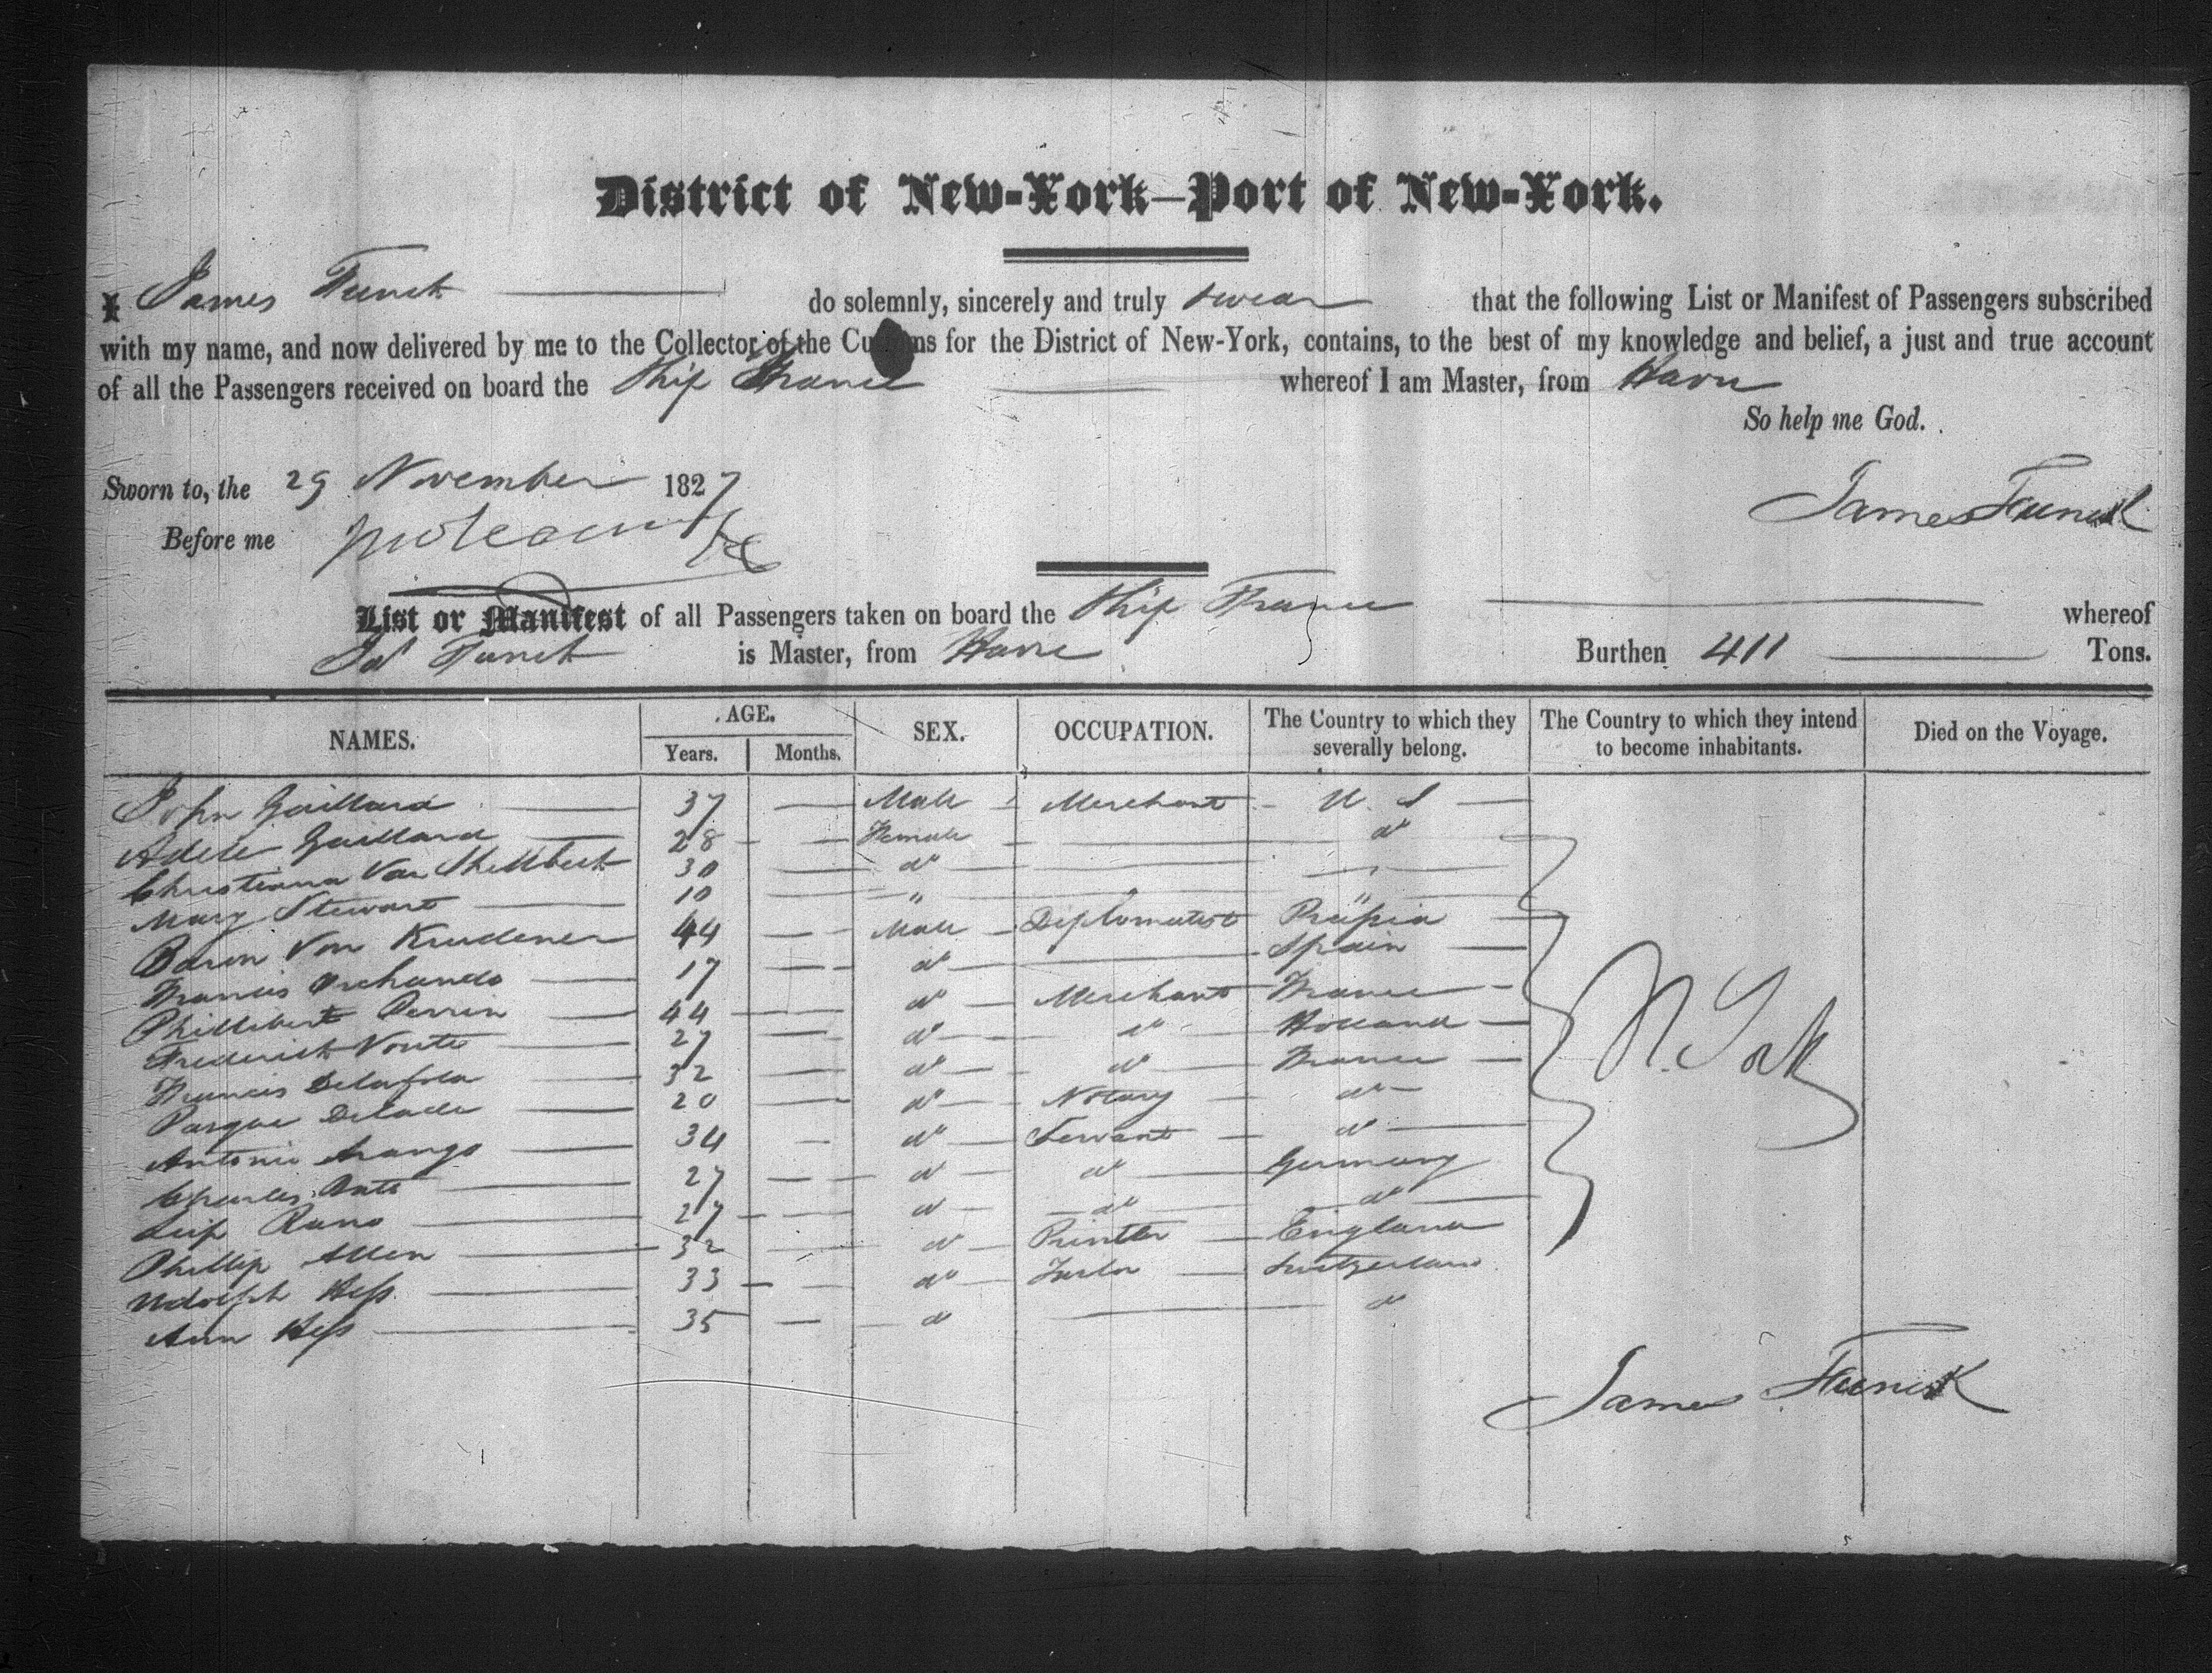 District of New-York—Port of New-York.
I James Funck do solemnly, sincerely and truly swear that the following List or Manifest of Passengers subscribed
with my name, and now delivered by me to the Collector of the Customs for the District of New-York, contains, to the best of my knowledge and belief, a just and true account
of all the Passengers received on board the Ship France whereof I am Master, from Havre
So help me God.
Sworn to, the 29 November 1827
James Funck
Before me
List or Manifest of all Passengers taken on board the Ship France whereof
Ja' Funck is Master, from Havre Burthen 411 Tons.
NAMES. AGE. Years. Months. SEX. OCCUPATION. The Country to which they severally belong. The Country to which they intend to become inhabitants. Died on the Voyage.
John Gaillard 37 Male Merchant U. S
Adele Gaillard 28 Female do
Christiana Van 30 do "
Mary Stewart 10 " "
Baron Von Krudener 44 Male Diplomatist Prussia
Francis 17 do Spain
Phillibert Perrin 44 do Merchant France
Frederick 27 do do Holland
Francis 32 do do France
20 do Notary do
Antonio Arango 34 do Servant do
Charles 27 do do Germany
27 do do do
Phillip Allen 32 do Printer England
Adolph Hess 33 do Switzerland
Ann Hess 35 do do
N. York
James Funck